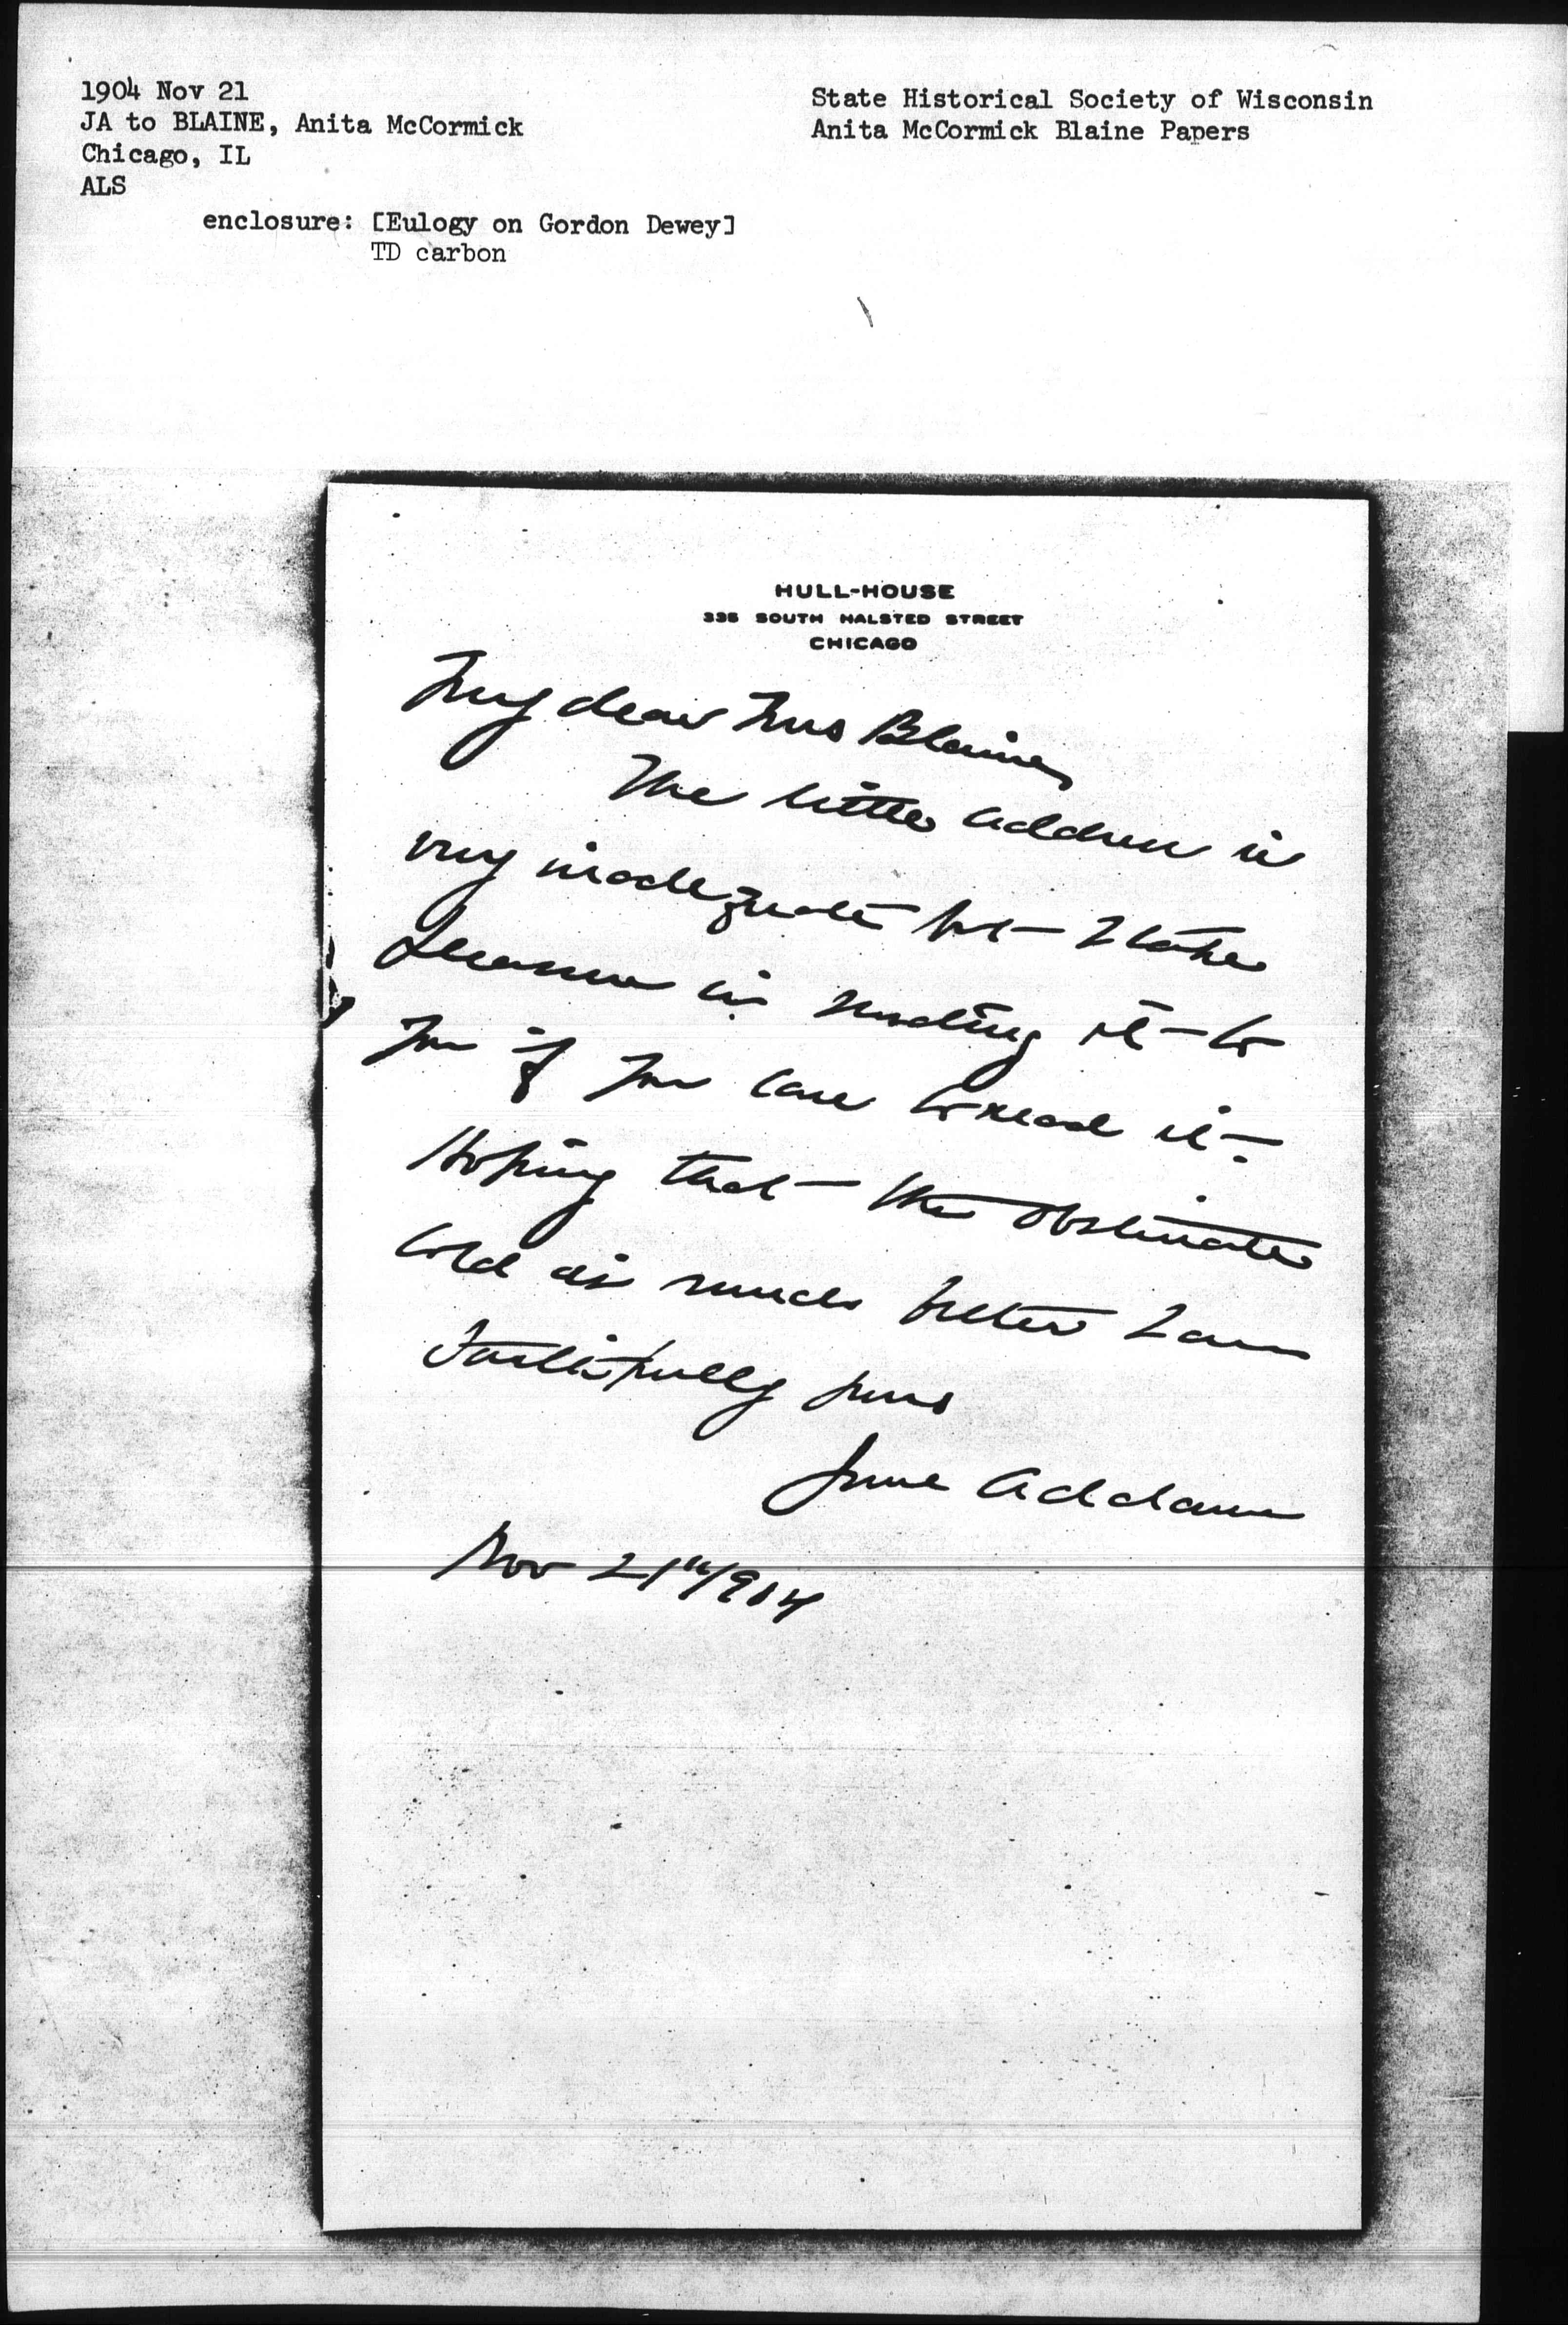 1904 Nov 21
JA to BLAINE, Anita McCormick
Chicago, IL
ALS
enclosure: [Eulogy on Gordon Dewey]
TD carbon
State Historical Society of Wisconsin
Anita McCormick Blaine Papers
HULL-HOUSE
335 SOUTH HALSTED STREET
CHICAGO
My dear Mrs Blaine,
The little address is
very inadequate but I take
pleasure in sending it to
you if you care to read it.
Hoping that the obstinate
cold is much better I am
Faithfully yours
Jane Addams
Nov 21" 1904